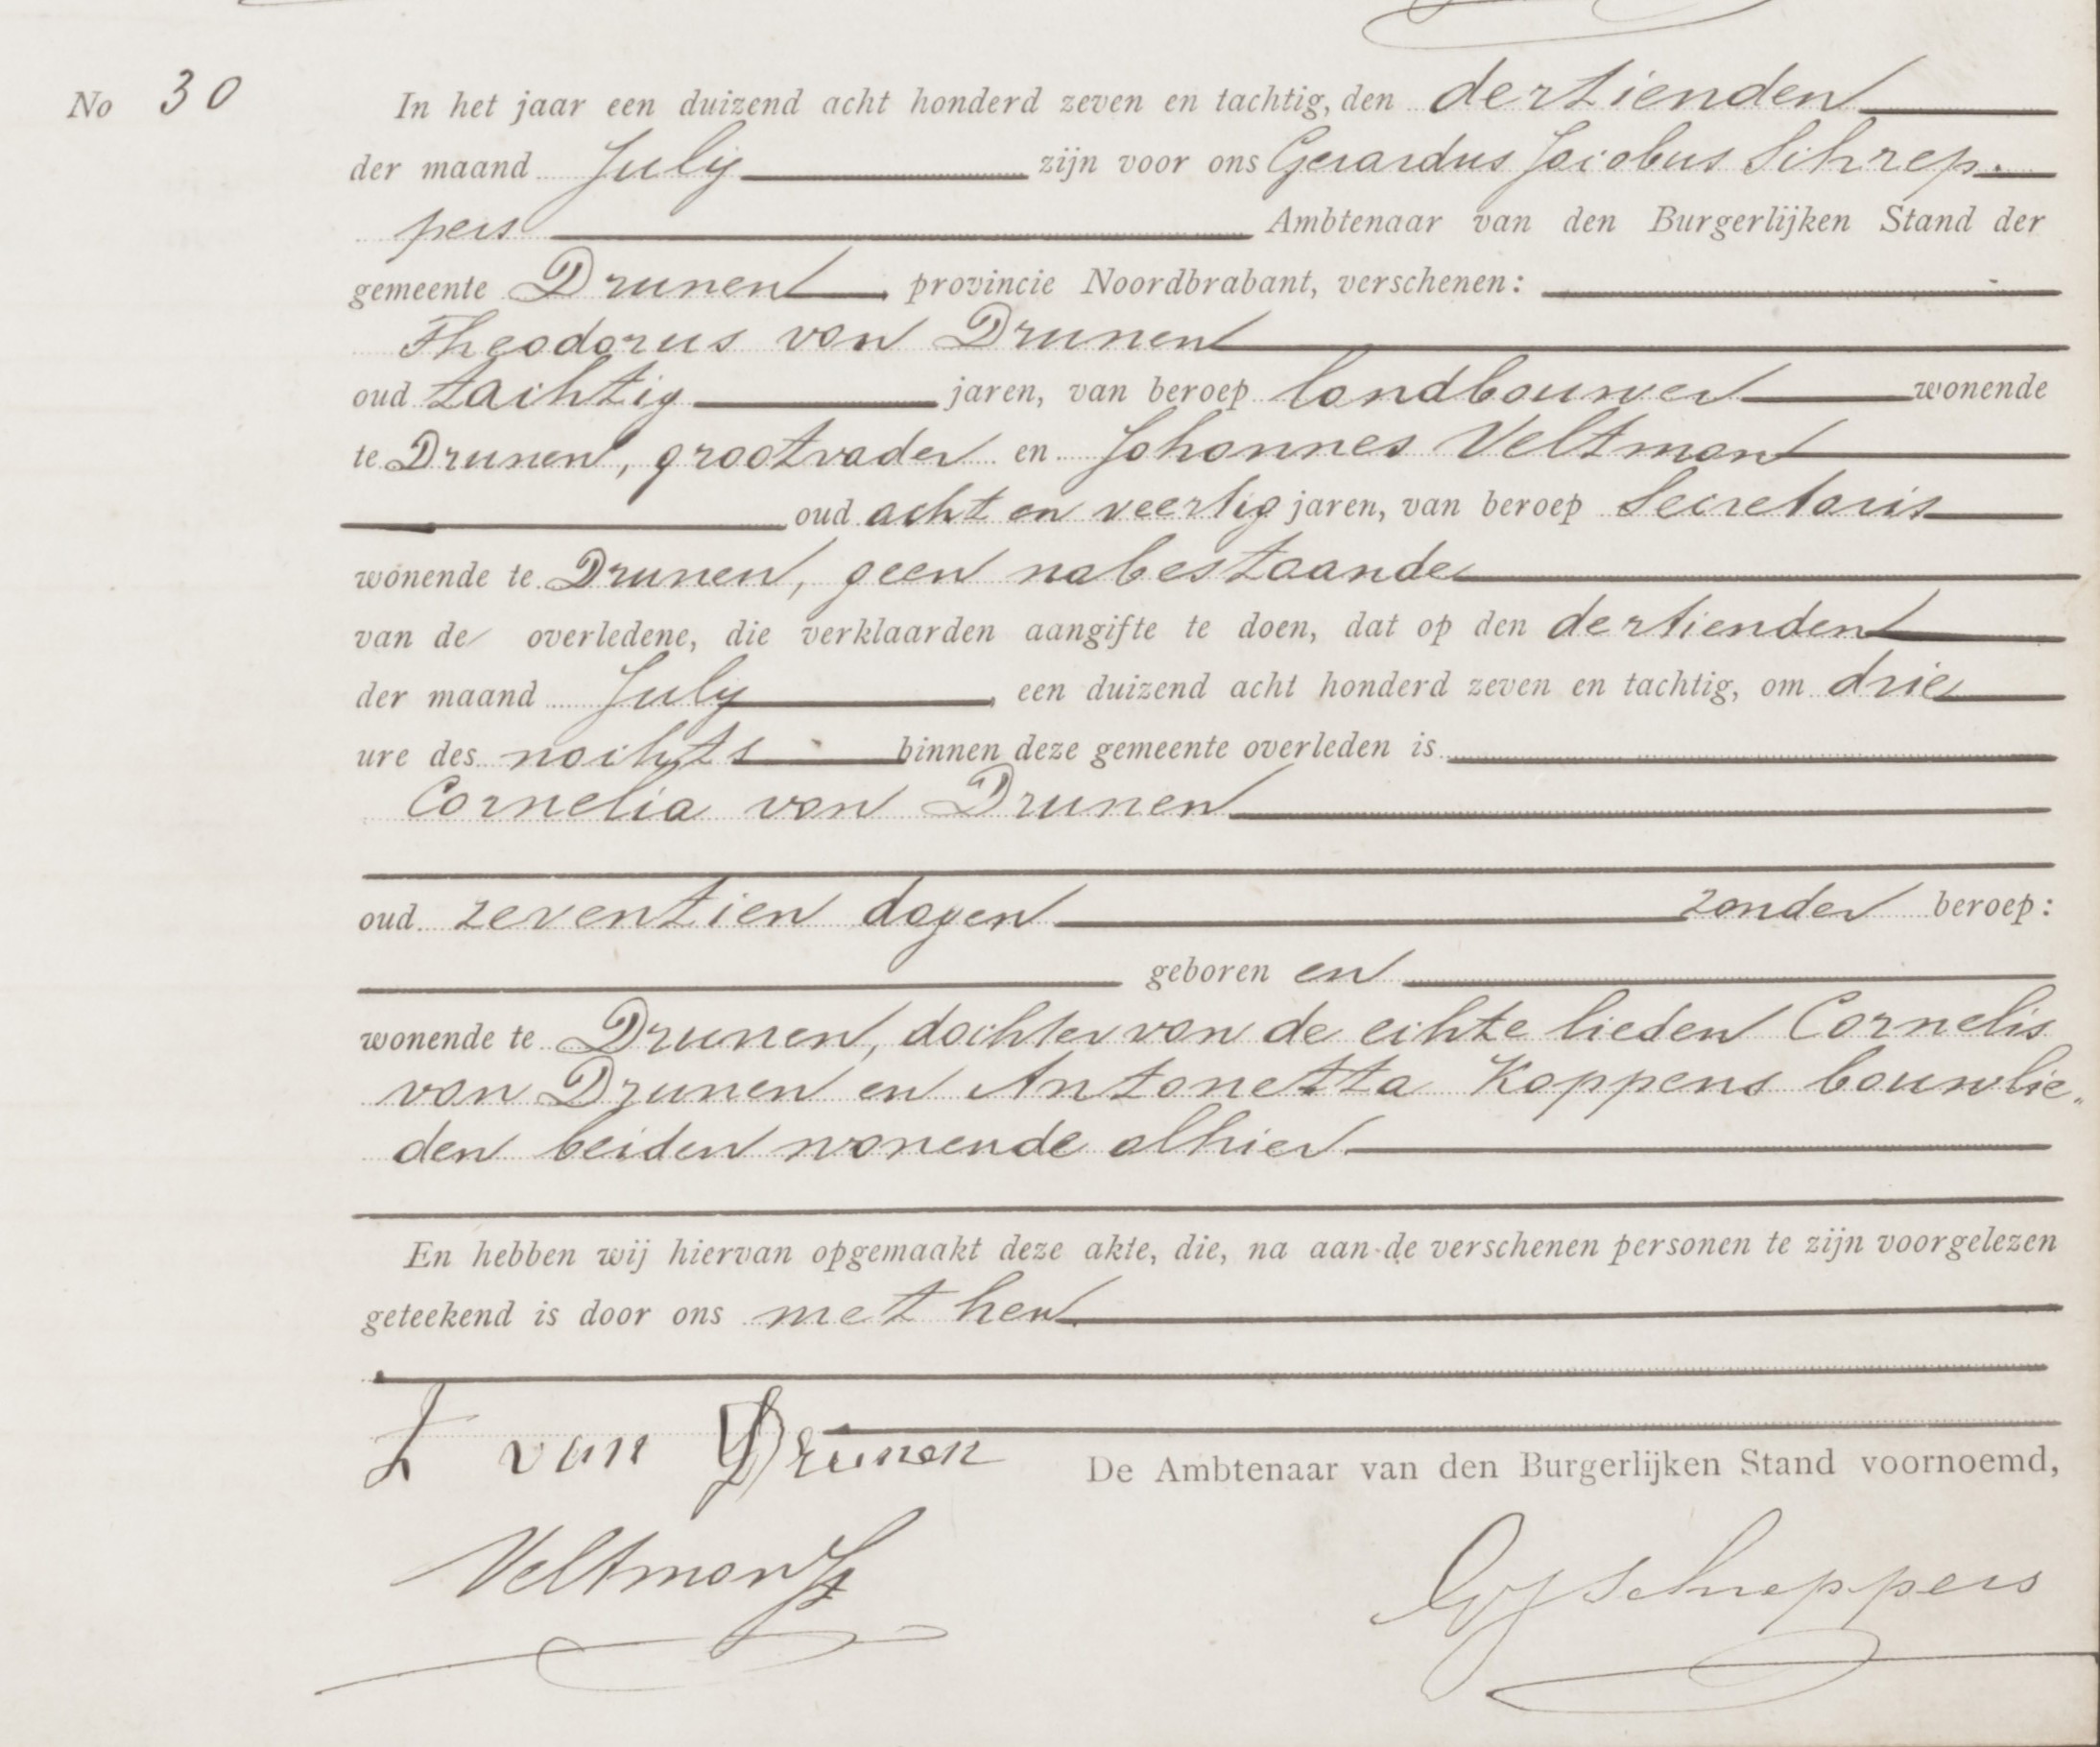 No 30 In het jaar een duizend acht honderd zeven en tachtig, den dertienden
der maand July zijn voor ons Gerardus Jacobus Schrep-
pers Ambtenaar van den Burgerlijken Stand der
gemeente Drunen provincie Noordbrabant, verschenen:
Theodorus van Drunen
oud tachtig jaren, van beroep landbouwer wonende
te Drunen, grootvader en Johannes Veltman
oud acht en veertig jaren, van beroep Secretaris
wonende te Drunen, geen nabestaande
van de overledene, die verklaarden aangifte te doen, dat op den dertienden
der maand July een duizend acht honderd zeven en tachtig, om drie
ure des nachts binnen deze gemeente overleden is
Cornelia van Drunen
oud zeventien dagen zonder beroep:
geboren en
wonende te Drunen, dochter van de echte lieden Cornelis
van Drunen en Antonetta Koppens bouwlie„
den beiden wonende alhier
En hebben wij hiervan opgemaakt deze akte, die, na aan de verschenen personen te zijn voorgelezen
geteekend is door ons met hen
T van Drunen De Ambtenaar van den Burgerlijken Stand voornoemd,
Veltman GJSchreppers